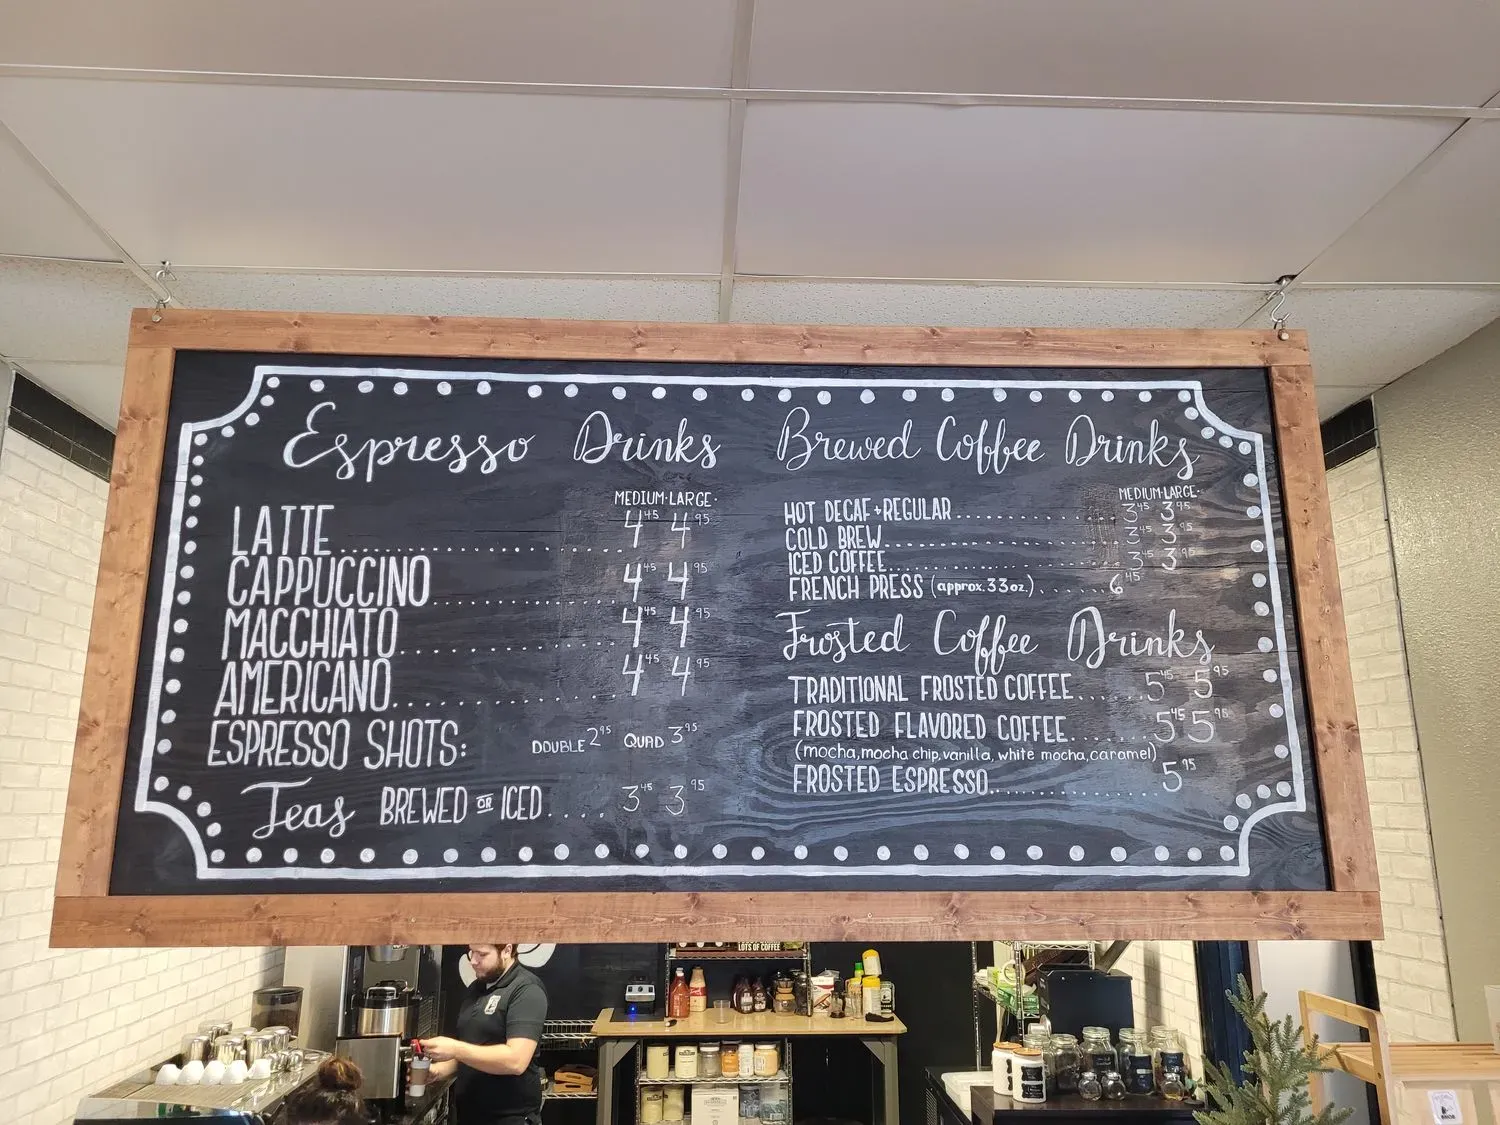 Espresso Drinks
MEDIUM · LARGE ·
LATTE.............................. 4⁴⁵ 4⁹⁵
CAPPUCCINO.................... 4⁴⁵ 4⁹⁵
MACCHIATO...................... 4⁴⁵ 4⁹⁵
AMERICANO...................... 4⁴⁵ 4⁹⁵
ESPRESSO SHOTS: DOUBLE 2⁹⁵ QUAD 3⁹⁵
Teas BREWED OR ICED.... 3⁴⁵ 3⁹⁵
Brewed Coffee Drinks
MEDIUM · LARGE ·
HOT DECAF + REGULAR.................... 3⁴⁵ 3⁹⁵
COLD BREW.............................. 3⁴⁵ 3⁹⁵
ICED COFFEE............................ 3⁴⁵ 3⁹⁵
FRENCH PRESS (approx. 33 oz.)...... 6⁴⁵
Frosted Coffee Drinks
TRADITIONAL FROSTED COFFEE...... 5⁴⁵ 5⁹⁵
FROSTED FLAVORED COFFEE......... 5⁴⁵ 5⁹⁵
(mocha, mocha chip, vanilla, white mocha, caramel)
FROSTED ESPRESSO................ 5⁹⁵
LOTS OF COFFEE